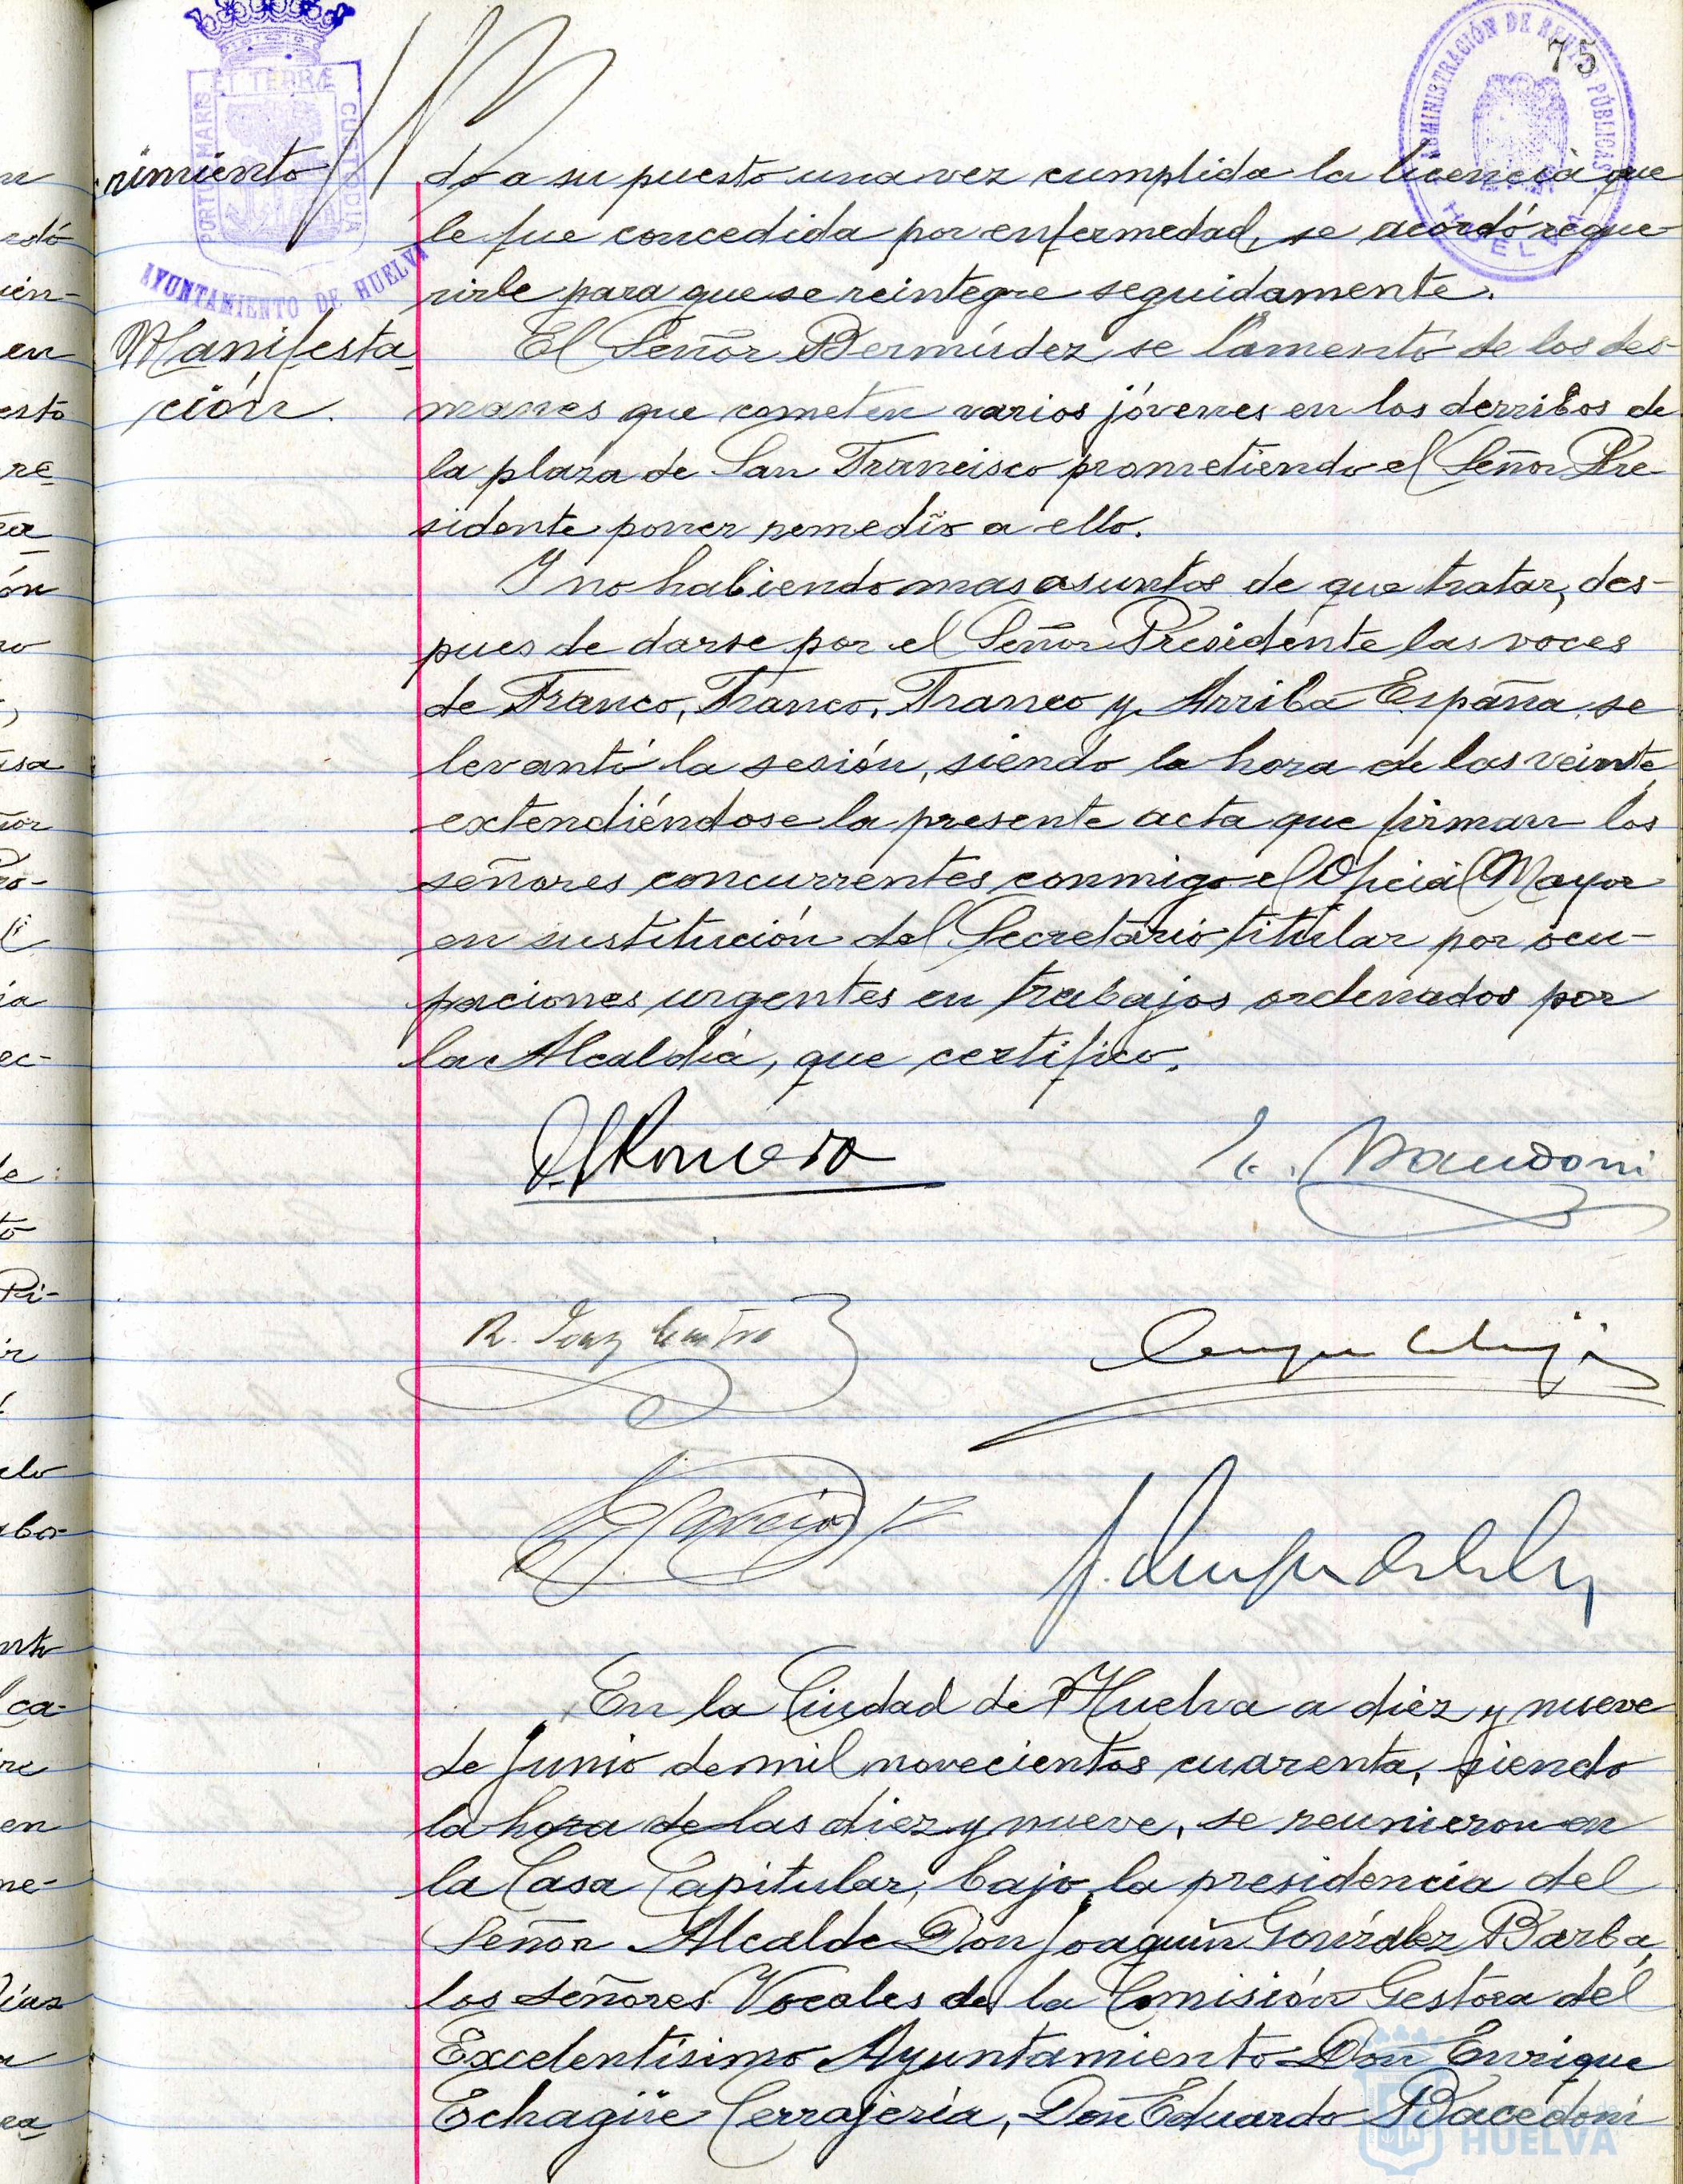 75
PORTUS MARIS ET TERRÆ CUSTODIA
AYUNTAMIENTO DE HUELVA
ADMINISTRACIÓN DE PÚBLICAS
HUELVA
rimiento
do a su puesto una vez cumplida la licencia que
le fue concedida por enfermedad, se acordó reque-
rirle para que se reintegre seguidamente.
Manifesta-
ción.
El Señor Bermúdez se lamentó de los des-
manes que cometen varios jóvenes en los derribos de
la plaza de San Francisco prometiendo el Señor Pre-
sidente poner remedio a ello.
Y no habiendo mas asuntos de que tratar, des-
pues de darse por el Señor Presidente las voces
de Franco, Franco, Franco y Arriba España se
levantó la sesión, siendo la hora de las veinte,
extendiéndose la presente acta que firman los
señores concurrentes conmigo el Oficial Mayor
en sustitución del Secretario titular por ocu-
paciones urgentes en trabajos ordenados por
la Alcaldía, que certifico.
Romero
R.
En la Ciudad de Huelva a diez y nueve
de Junio de mil novecientos cuarenta, siendo
la hora de las diez y nueve, se reunieron en
la Casa Capitular, bajo la presidencia del
Señor Alcalde Don Joaquín González Barba,
los señores Vocales de la Comisión Gestora del
Excelentísimo Ayuntamiento Don Enrique
Echagüe Cerrajería, Don Eduardo Bacedoni
HUELVA